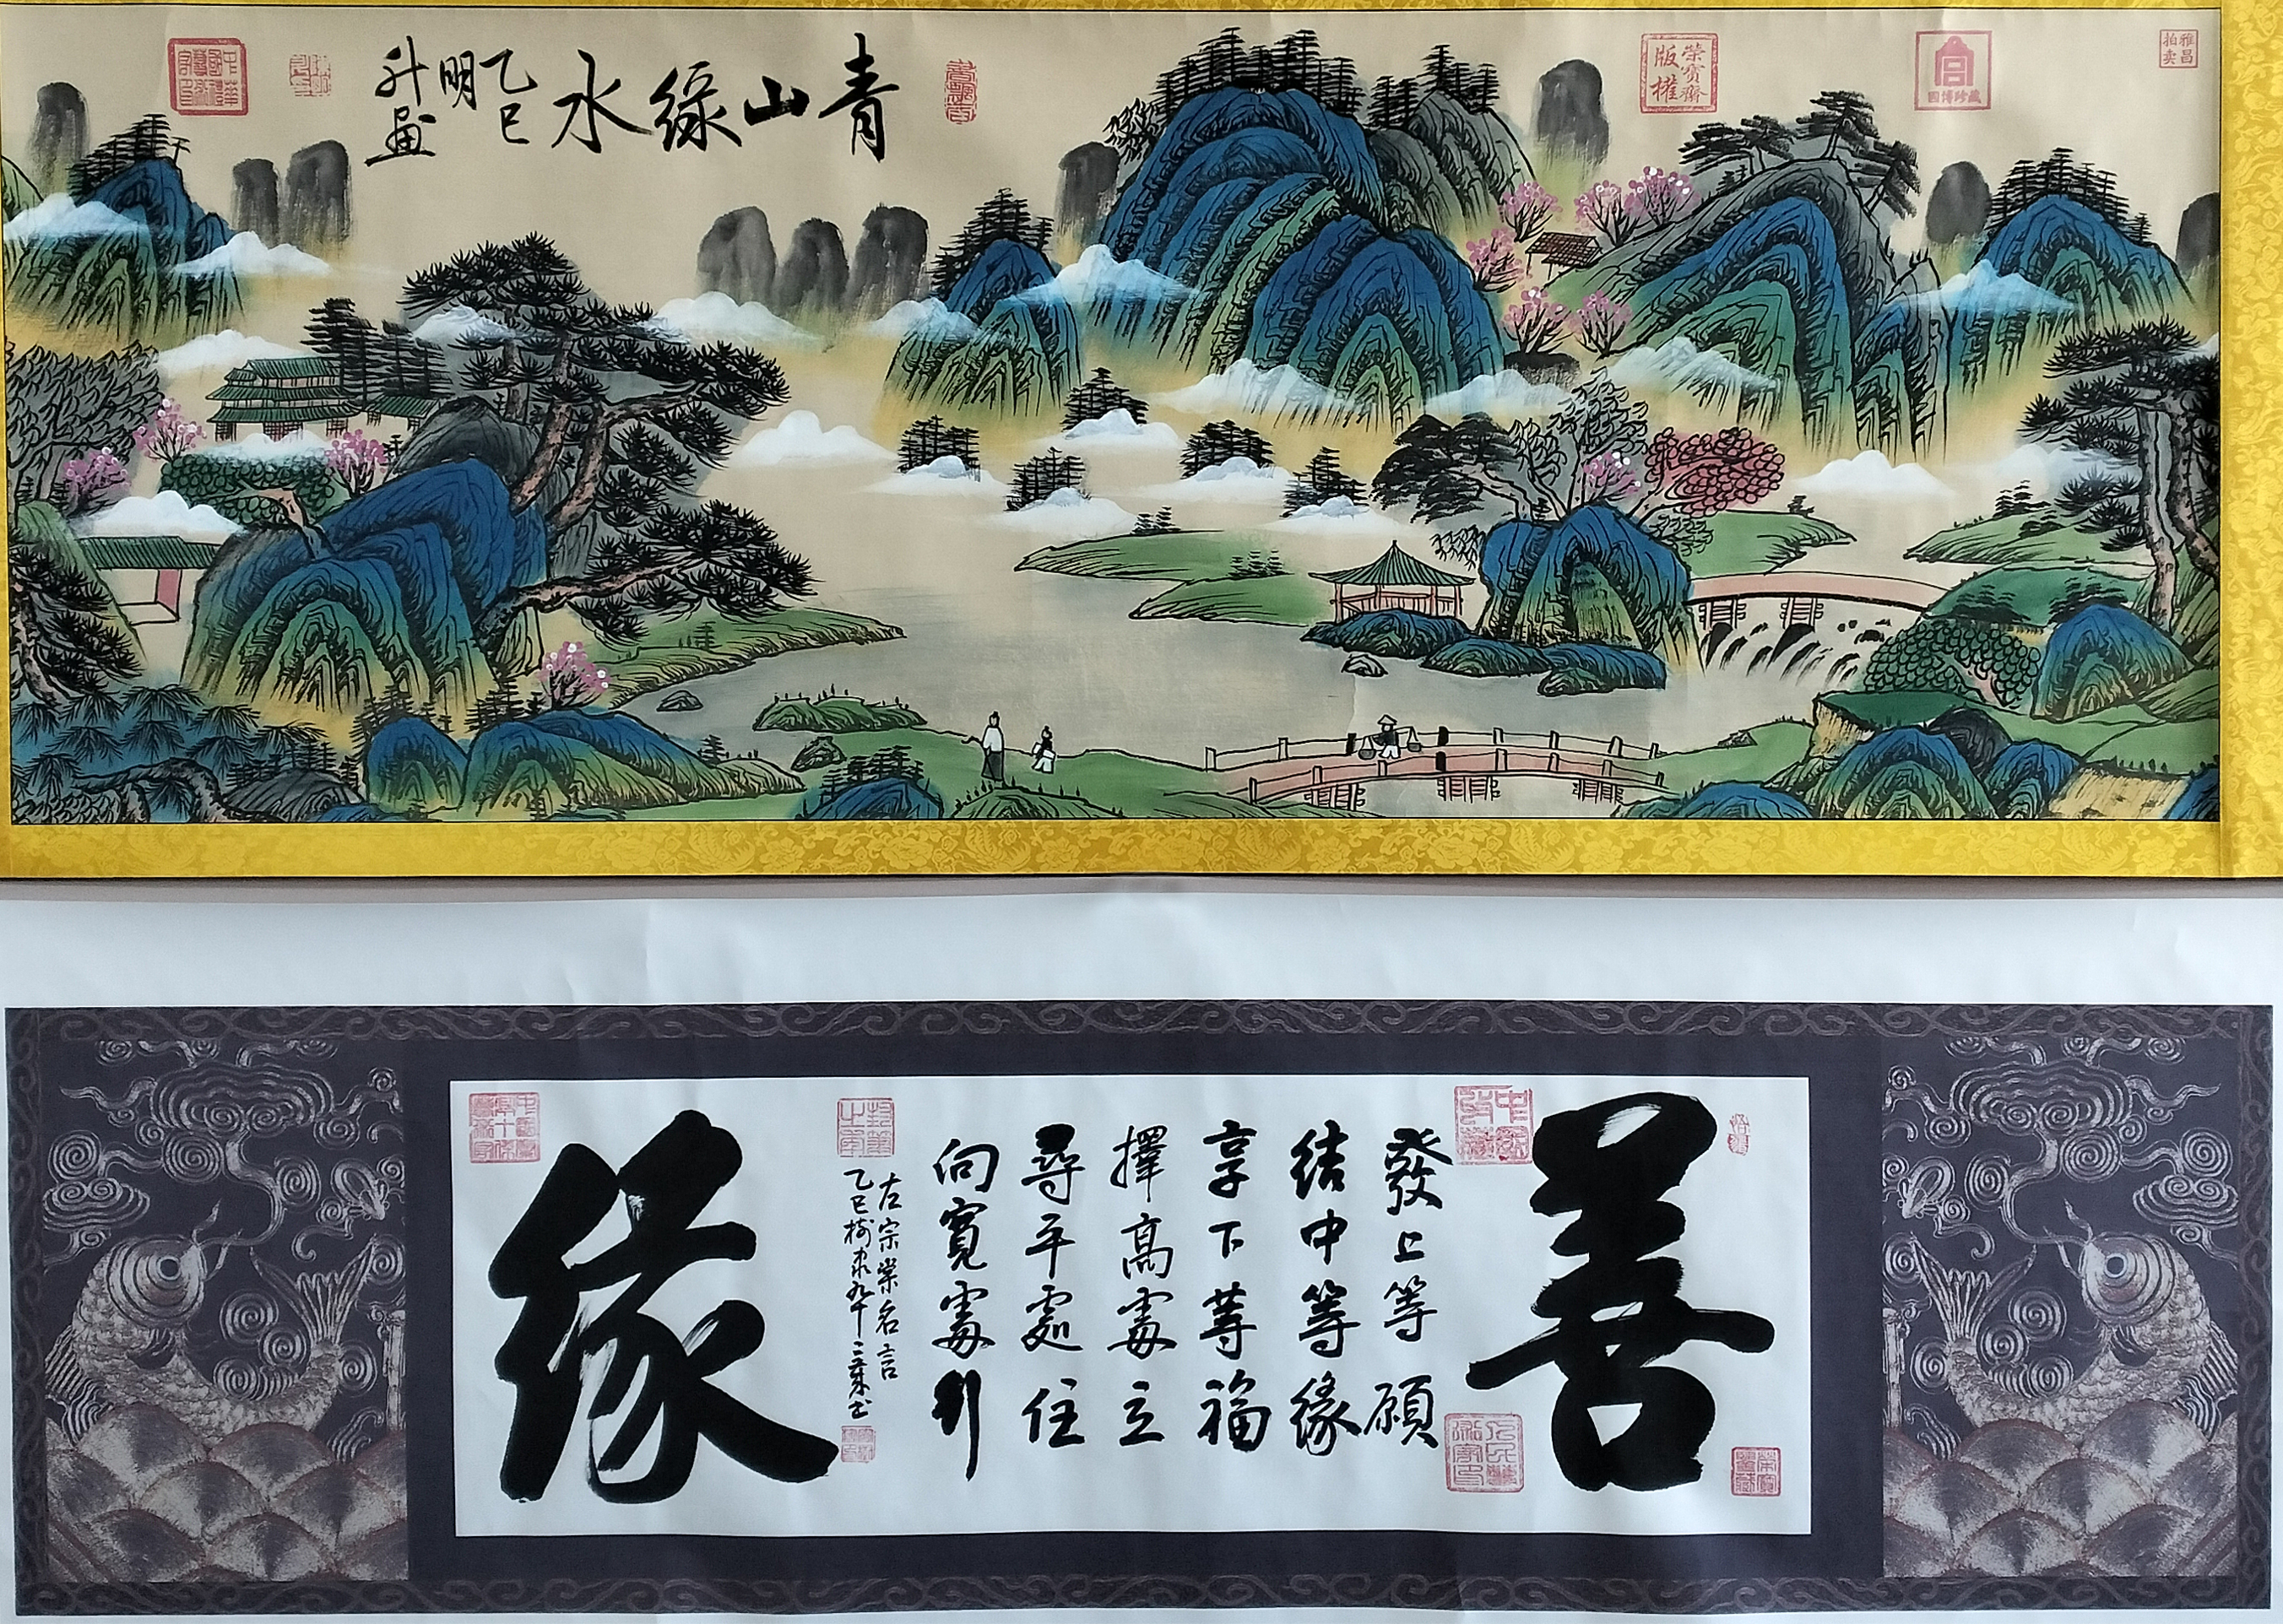 青山綠水
乙巳
明
升畫
榮寶齋
版權
國博珍藏
雅昌
拍卖
善緣
發上等願
結中等緣
享下等福
擇高處立
尋平處住
向寬處行
左宗棠名言
乙巳